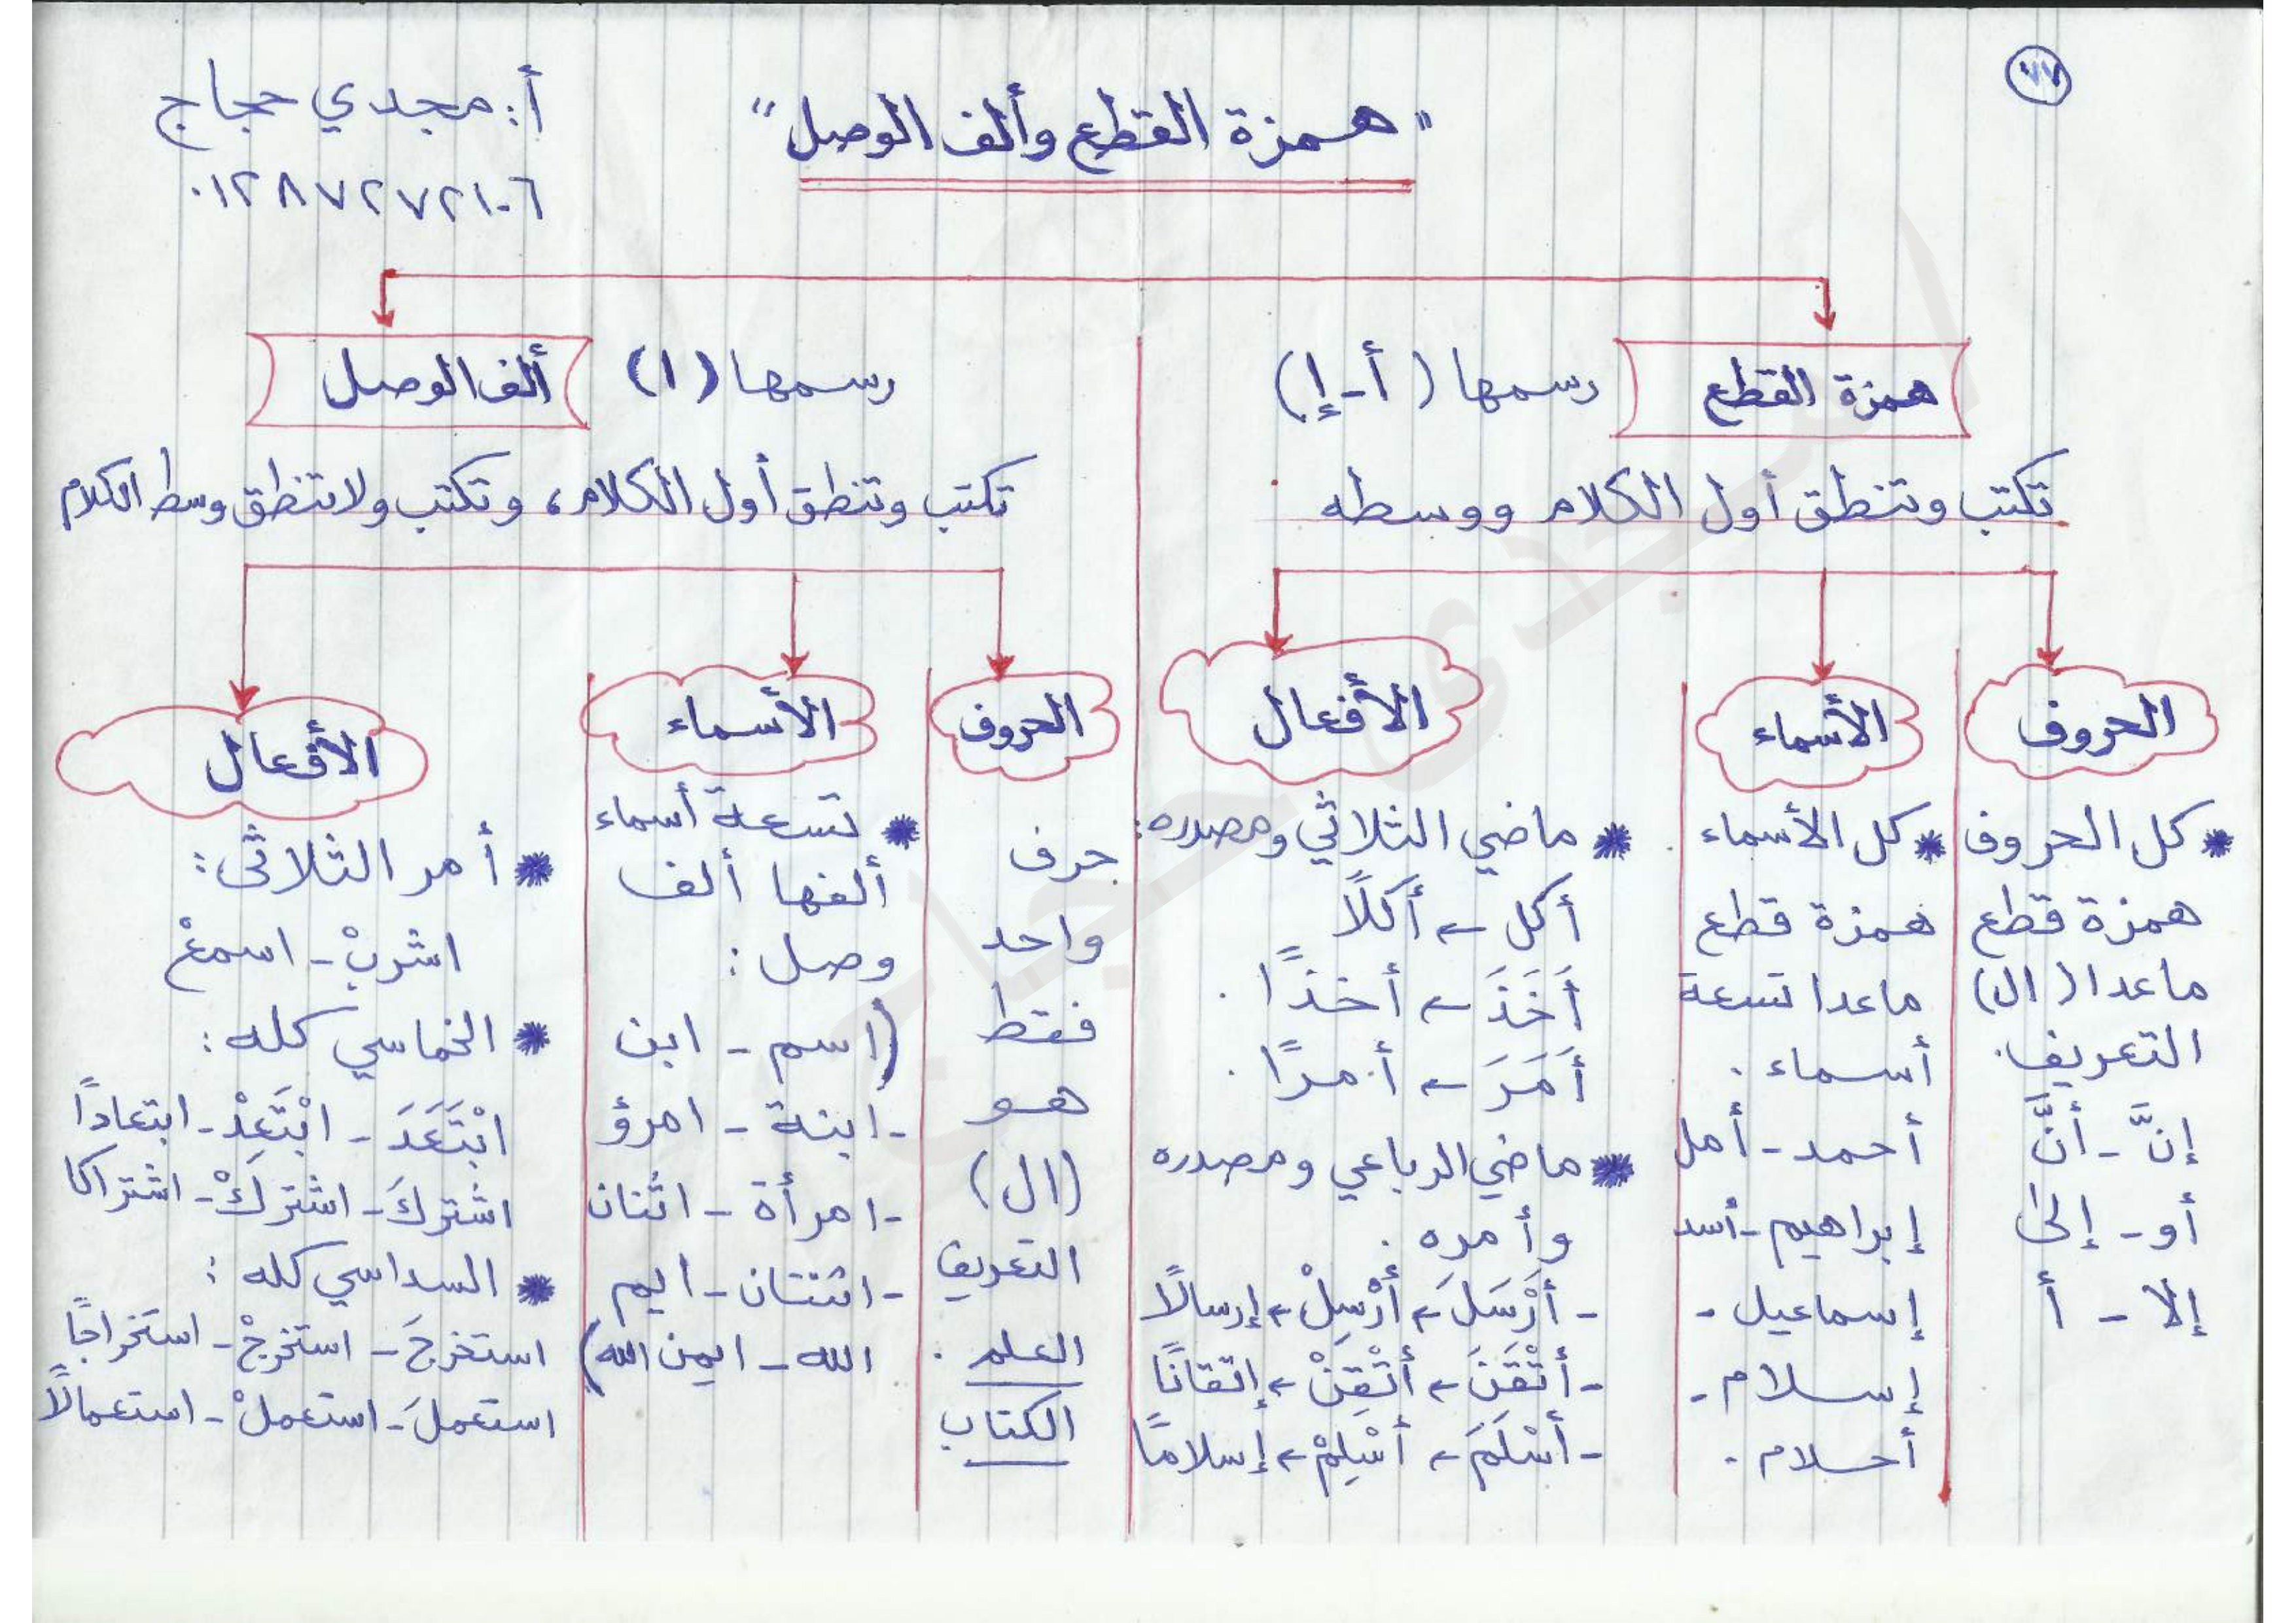 ٧٧
أ: مجدي حجاج
٠١٢٨٧٢٧٢١٠٦
"همزة القطع وألف الوصل"
همزة القطع رسمها (أ - إ)
تكتب وتنطق أول الكلام ووسطه
الحروف
* كل الحروف
همزة قطع
ماعدا (ال)
التعريف.
إنَّ - أنَّ
أو - إلى
إلا - أ
الأسماء
* كل الأسماء
همزة قطع
ماعدا تسعة
أسماء.
أحمد - أمل
إبراهيم - أسد
إسماعيل -
إسلام -
أحلام.
الأفعال
* ماضي الثلاثي ومصدره:
أكل ← أكلًا
أَخَذَ ← أخذًا.
أَمَرَ ← أمرًا.
* ماضي الرباعي ومصدره
وأمره.
- أَرْسَلَ ← أَرْسِلْ ← إرسالًا
- أَتْقَنَ ← أَتْقِنْ ← إتقانًا
- أَسْلَمَ ← أَسْلِمْ ← إسلامًا
ألف الوصل رسمها (ا)
تكتب وتنطق أول الكلام، وتكتب ولاتنطق وسط الكلام
الحروف
حرف
واحد
فقط
هو
(ال)
التعريف
العلم.
الكتاب
الأسماء
* تسعة أسماء
ألفها ألف
وصل:
(اسم - ابن
- ابنة - امرؤ
- امرأة - اثنان
- اثنتان - ايم
الله - ايمن الله)
الأفعال
* أمر الثلاثى:
اشربْ - اسمعْ
* الخماسي كله:
ابْتَعَدَ - ابْتَعِدْ - ابتعادًا
اشتركَ - اشتركْ - اشتراكا
* السداسي كله:
استخرجَ - استخرجْ - استخراجًا
استعملَ - استعملْ - استعمالًا